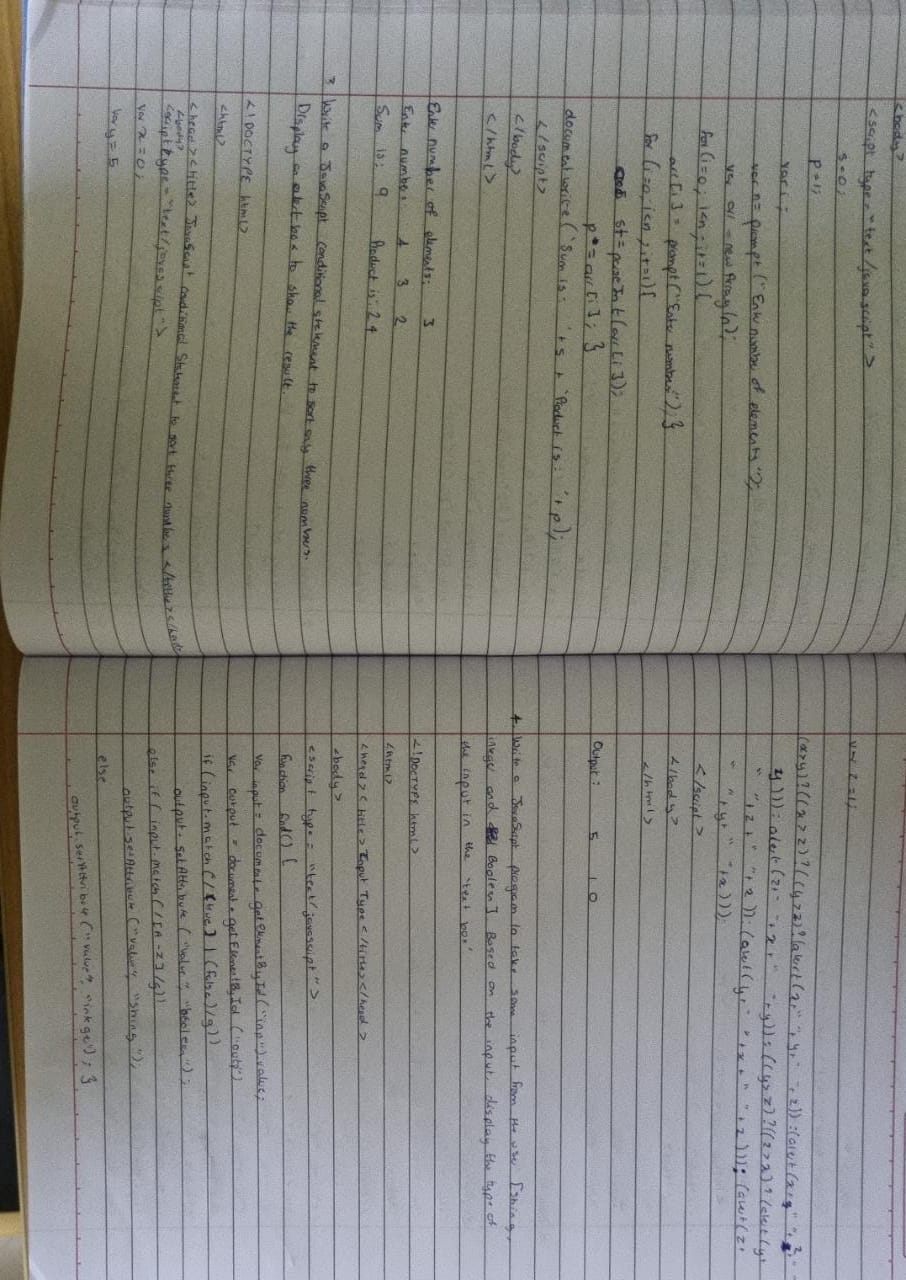 <body>
<script type="text/javascript">
s=0;
p=1;
var i;
var n= prompt("Enter number of elements");
var arr = new Array(n);
for(i=0; i<n; i+=1){
arr[i] = prompt("Enter number"); }
for(i=0; i<n; i+=1){
s+= parseInt(arr[i]);
p*= arr[i]; }
document.write('Sum is: '+s+ 'Product is: '+p);
</script>
</body>
</html>
Enter number of elements: 3
Enter number: 4 3 2
Sum is: 9 Product is: 24
3 Write a JavaScript conditional statement to sort only three numbers.
Display an alert box to show the result.
<!DOCTYPE html>
<html>
<head><title> JavaScript conditional Statement to sort three numbers </title></head>
<body>
<script type="text/javascript">
var x=0;
var y=5
var z=1;
(x>y)?((x>z)?((y>z)?(alert(x+" "+y+" "+z)):(alert(x+" "+z+"
y))):alert(z+" "+x+" "+y)):((y>z)?((z>x)?(alert(y+
" "+z+" "+x)):(alert(y+" "+x+" "+z))):(alert(z+
" "+y+" "+x)));
</script>
</body>
</html>
Output: 5 1 0
4. Write a JavaScript program to take some input from the user [String,
integer and Boolean] Based on the input, display the type of
the input in the 'text box'
<!DOCTYPE html>
<html>
<head><title>Input Type</title></head>
<body>
<script type="text/javascript">
function find() {
var input = document.getElementById("inp").value;
var output = document.getElementById("outp")
if (input.match(/(true)|(false)/g))
output.setAttribute("value", "boolean");
else if (input.match(/[A-z]/g))
output.setAttribute("value", "string");
else
output.setAttribute("value", "integer"); }